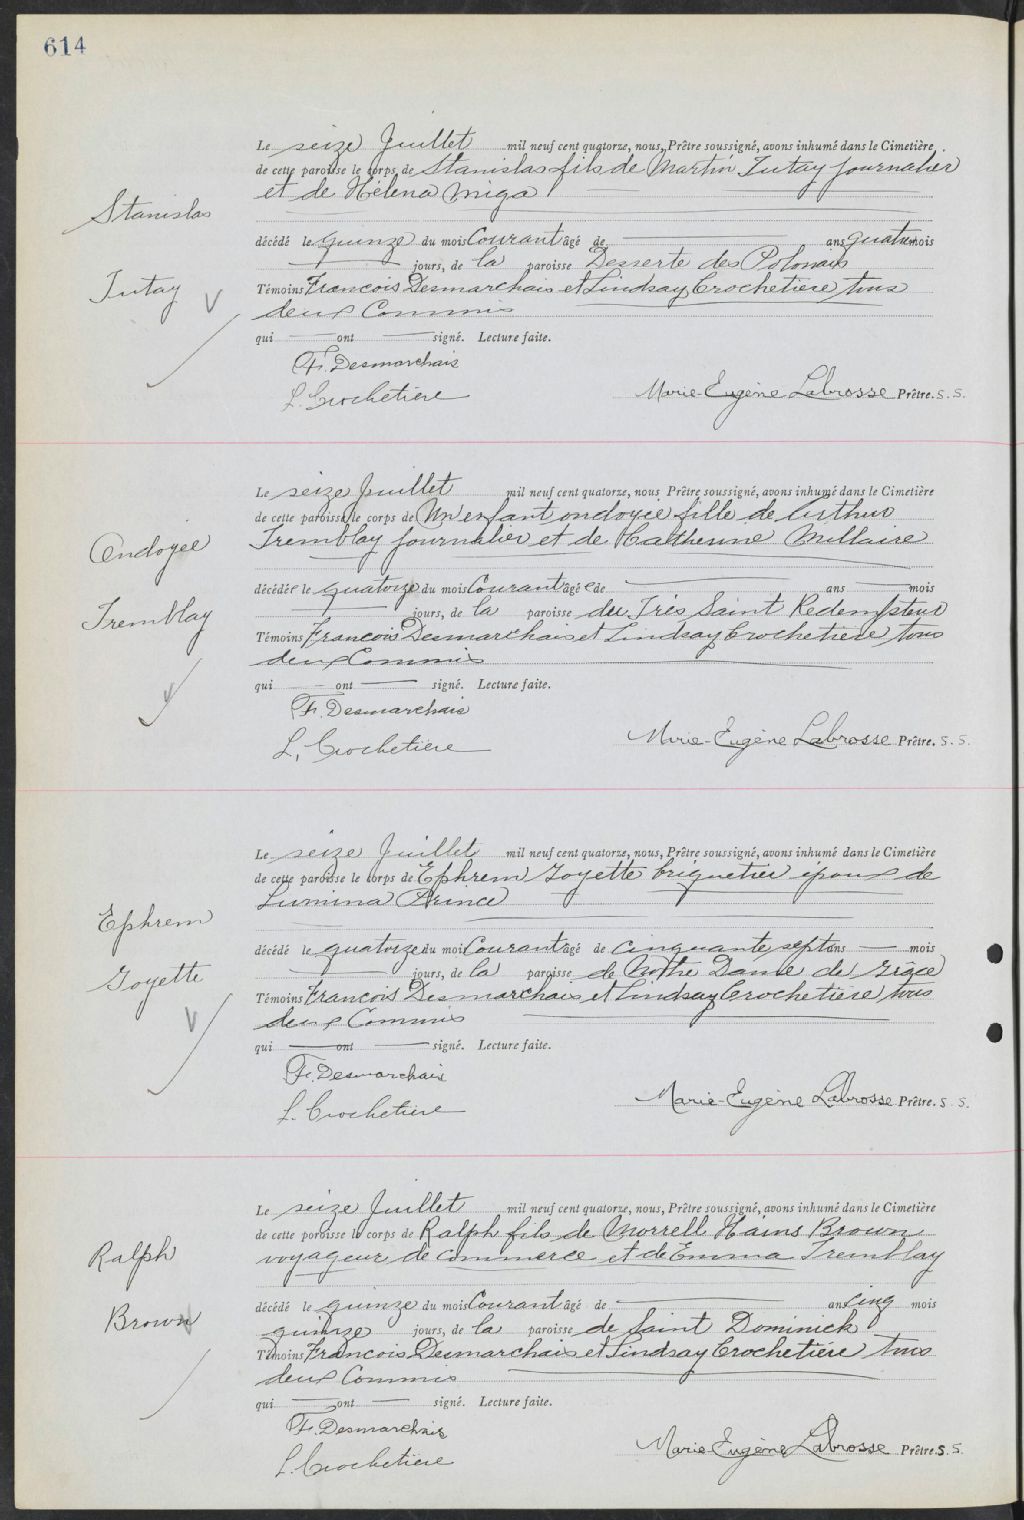 614
Le seize Juillet mil neuf cent quatorze, nous, Prêtre soussigné, avons inhumé dans le Cimetière
de cette paroisse le corps de Stanislas fils de Martin Tutay journalier
et de Hélena Miga
Stanislas
décédé le quinze du mois Courant âgé de ans quatre mois
jours, de la paroisse Desserte des Polonais
Tutay
Témoins Francois Desmarchais et Lindsay Crochetière tous
deux Commis
qui ont signé. Lecture faite.
F. Desmarchais
L. Crochetière
Marie-Eugène Labrosse Prêtre. S. S.
Le seize Juillet mil neuf cent quatorze, nous Prêtre soussigné, avons inhumé dans le Cimetière
de cette paroisse le corps de Un enfant ondoyée fille de Arthur
Tremblay journalier et de Katherine Millaire
Ondoyee
décédée le quatorze du mois Courant âgée de ans mois
jours, de la paroisse du Très Saint Redempteur
Tremblay
Témoins Francois Desmarchais et Lindsay Crochetière tous
deux Commis
qui ont signé. Lecture faite.
F. Desmarchais
L. Crochetiere
Marie-Eugène Labrosse Prêtre. S. S.
Le seize Juillet mil neuf cent quatorze, nous, Prêtre soussigné, avons inhumé dans le Cimetière
de cette paroisse le corps de Ephrem Goyette briquetier époux de
Lumina Prince
Ephrem
décédé le quatorze du mois Courant âgé de cinquante sept ans mois
jours, de la paroisse de Notre Dame de Grâce
Goyette
Témoins Francois Desmarchais et Lindsay Crochetière tous
deux Commis
qui ont signé. Lecture faite.
F. Desmarchais
L. Crochetière
Marie-Eugène Labrosse Prêtre. S. S.
Le seize Juillet mil neuf cent quatorze, nous, Prêtre soussigné, avons inhumé dans le Cimetière
de cette paroisse le corps de Ralph fils de Morrell Hains Brown
voyageur de commerce et de Emma Tremblay
Ralph
décédé le quinze du mois Courant âgé de ans cinq mois
Brown
quinze jours, de la paroisse de Saint Dominick
Témoins Francois Desmarchais et Lindsay Crochetière tous
deux Commis
qui ont signé. Lecture faite.
F. Desmarchais
L. Crochetière
Marie-Eugène Labrosse Prêtre. S. S.